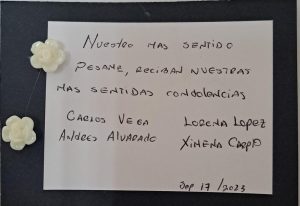 NUESTRO MAS SENTIDO
PESAME, RECIBAN NUESTRAS
MAS SENTIDAS CONDOLENCIAS
CARLOS VEGA LORENA LOPEZ
ANDRES ALVARADO XIMENA CARPIO
Sep 17 / 2023